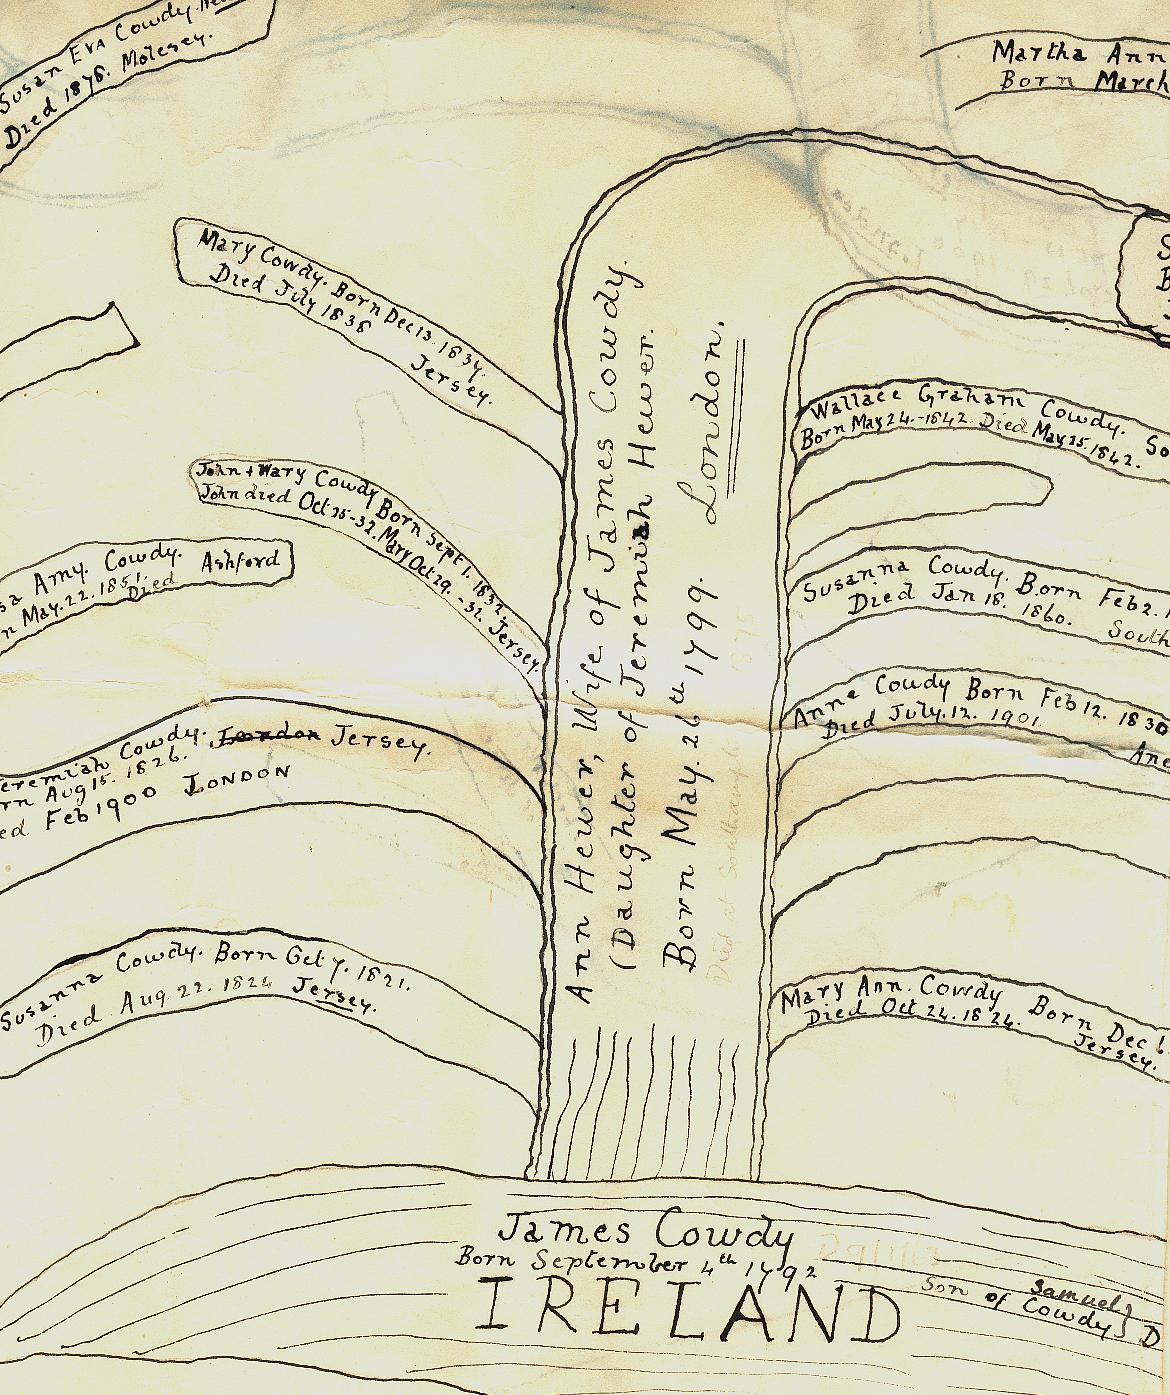 Susan Eva Cowdy.
Died 1878. Molesey.
Martha Ann
Born March
Mary Cowdy. Born Dec 13. 1834.
Died July 1838 Jersey.
John + Mary Cowdy Born Sept 1. 1832.
John died Oct 25-32. Mary Oct 29. -32. Jersey.
sa Amy. Cowdy. Ashford
n May. 22. 1851. Died
eremiah Cowdy. London Jersey.
rn Aug 15. 1826.
ed Feb 1900 LONDON
Susanna Cowdy. Born Oct 7. 1821.
Died Aug. 22. 1824 Jersey.
Ann Hewer, Wife of James Cowdy.
(Daughter of Jeremiah Hewer.
Born May. 26th 1799. London.
Died at
Wallace Graham Cowdy. So
Born May 24.-1842. Died May 25. 1842.
Susanna Cowdy. Born Feb 2. 1
Died Jan 18. 1860. South
Anne Cowdy Born Feb 12. 1830
Died July. 12. 1901.
Ane
Mary Ann. Cowdy Born Dec 1.
Died Oct 24. 1824. Jersey.
James Cowdy
Born September 4th 1792
IRELAND
Son of Samuel }
Cowdy } D